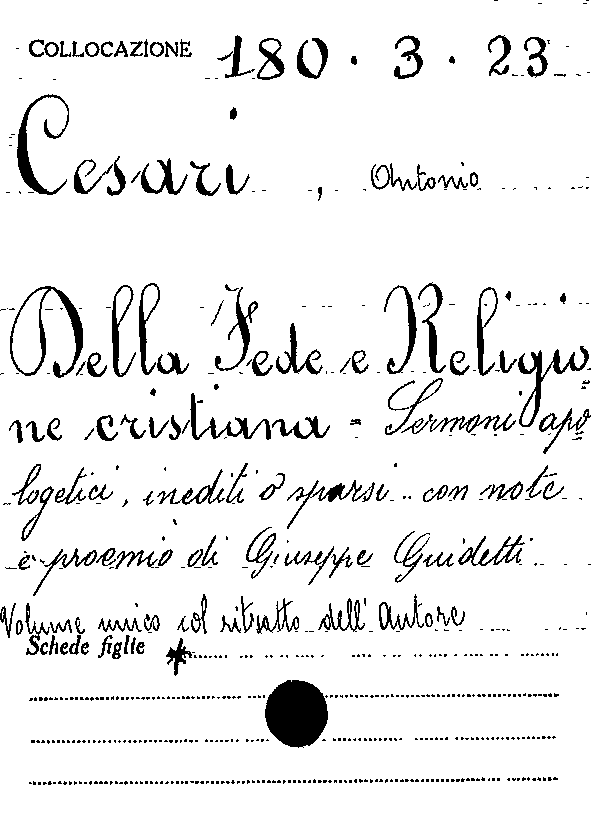 COLLOCAZIONE 180 . 3 . 23
Cesari , Antonio
Della Fede e Religio
ne cristiana = Sermoni apo
logetici, inediti o sparsi .. con note
e proemio di Giuseppe Guidetti
Volume unico col ritratto dell'Autore
Schede figlie *